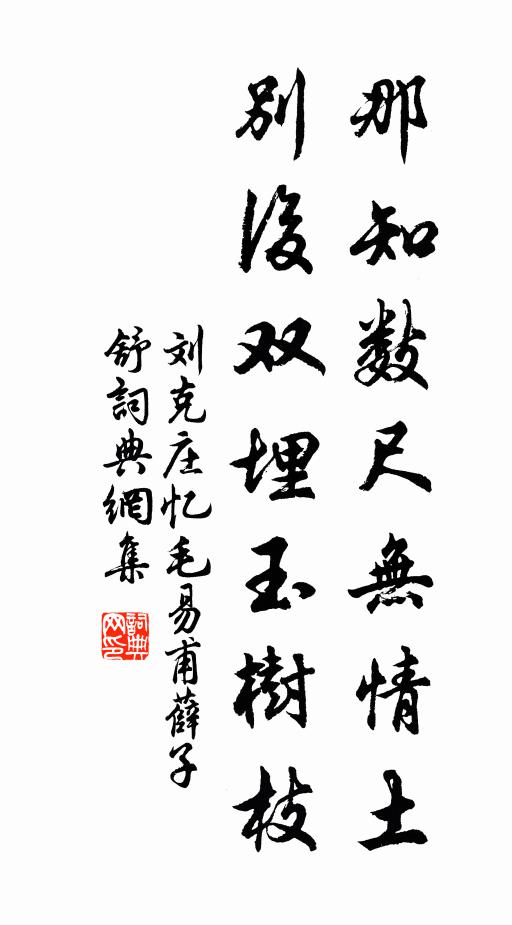 那知数尺無情土
别後双埋玉樹枝
刘克庄忆毛易甫薛子
舒詞典網集
詞典网印